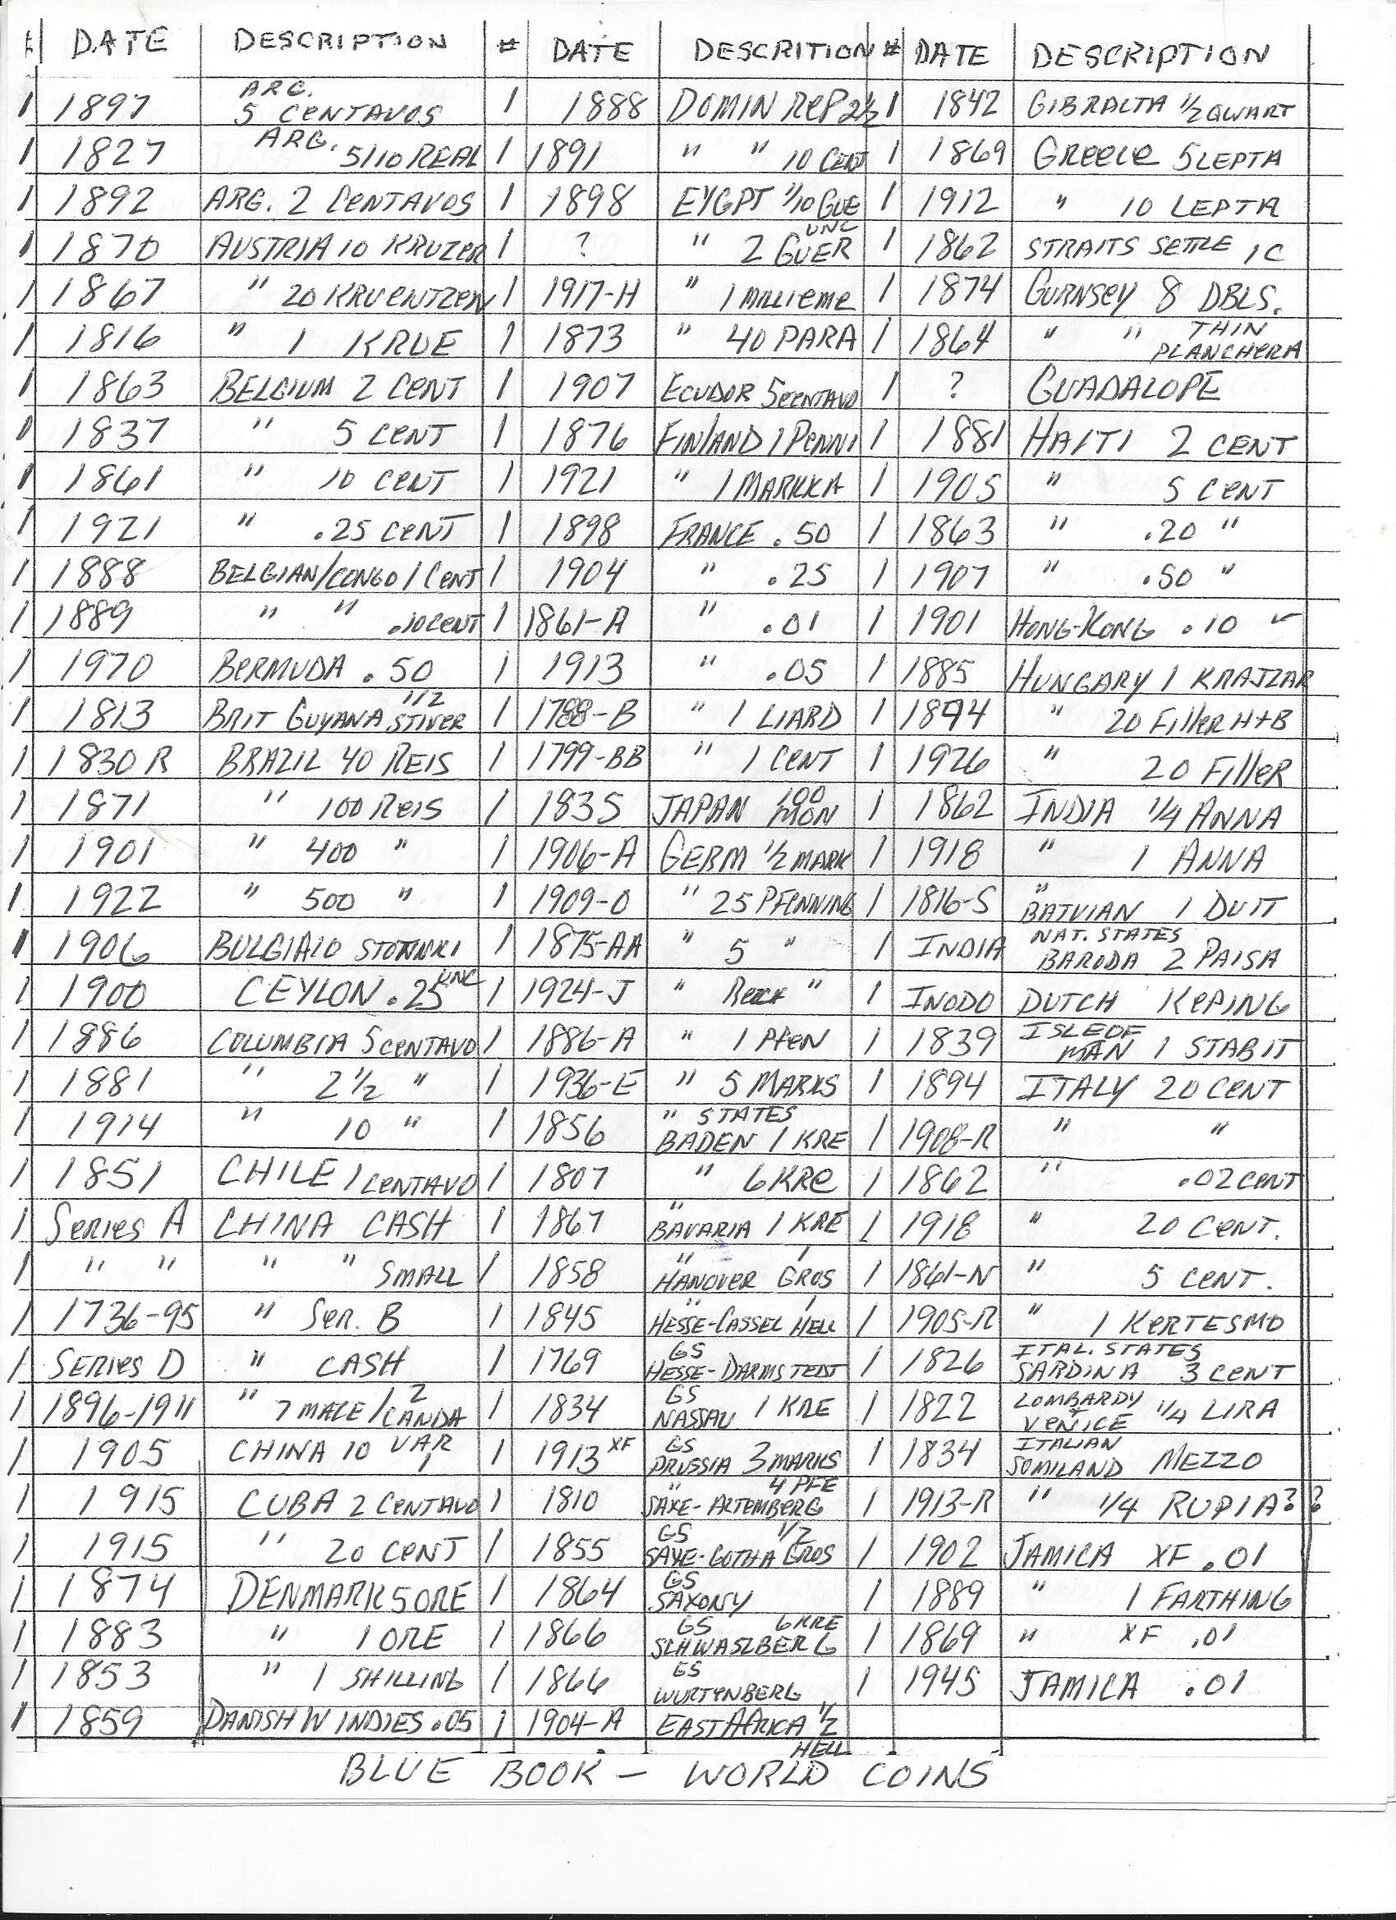 # DATE DESCRIPTION # DATE DESCRITION # DATE DESCRIPTION
1 1897 ARG. 5 CENTAVOS 1 1888 DOMIN REP 2½ 1 1842 GIBRALTA ½ QWART
1 1827 ARG. 5/10 REAL 1 1891 " " 10 CENT 1 1869 GREECE 5 LEPTA
1 1892 ARG. 2 CENTAVOS 1 1898 EYGPT 1/10 GUE 1 1912 " 10 LEPTA
1 1870 AUSTRIA 10 KRUZER 1 ? " 2 GUER UNC 1 1862 STRAITS SETTLE 1C
1 1867 " 20 KRUENTZEN 1 1917-H " 1 MILLIEME 1 1874 GURNSEY 8 DBLS.
1 1816 " 1 KRUE 1 1873 " 40 PARA 1 1864 " " THIN PLANCHERA
1 1863 BELGIUM 2 CENT 1 1907 ECUDOR 5 CENTAVO 1 ? GUADALOPE
1 1837 " 5 CENT 1 1876 FINLAND 1 PENNI 1 1881 HAITI 2 CENT
1 1861 " 10 CENT 1 1921 " 1 MARKKA 1 1905 " 5 CENT
1 1921 " .25 CENT 1 1898 FRANCE .50 1 1863 " .20 "
1 1888 BELGIAN/CONGO 1 CENT 1 1904 " .25 1 1907 " .50 "
1 1889 " " .10 CENT 1 1861-A " .01 1 1901 HONG-KONG .10
1 1970 BERMUDA .50 1 1913 " .05 1 1885 HUNGARY 1 KRAJZAR
1 1813 BRIT GUYANA 1/2 STIVER 1 1788-B " 1 LIARD 1 1894 " 20 FILLER H+B
1 1830 R BRAZIL 40 REIS 1 1799-BB " 1 CENT 1 1926 " 20 FILLER
1 1871 " 100 REIS 1 1835 JAPAN 100 MON 1 1862 INDIA ¼ ANNA
1 1901 " 400 " 1 1906-A GERM ½ MARK 1 1918 " 1 ANNA
1 1922 " 500 " 1 1909-O " 25 PFENNING 1 1816-S " BATVIAN 1 DUIT
1 1906 BULGIA10 STOTINKI 1 1875-AA " 5 " 1 INDIA NAT. STATES BARODA 2 PAISA
1 1900 CEYLON .25 UNC 1 1924-J " " 1 INODO DUTCH KEPING
1 1886 COLUMBIA 5 CENTAVO 1 1886-A " 1 PFEN 1 1839 ISLE OF MAN 1 STABIT
1 1881 " 2½ " 1 1936-E " 5 MARKS 1 1894 ITALY 20 CENT
1 1914 " 10 " 1 1856 " STATES BADEN 1 KRE 1 1908-R " "
1 1851 CHILE 1 CENTAVO 1 1807 " 6 KRE 1 1862 " .02 CENT
1 SERIES A CHINA CASH 1 1867 " BAVARIA 1 KRE 1 1918 " 20 CENT.
1 " " " " SMALL 1 1858 " HANOVER 1 GROS 1 1861-N " 5 CENT.
1 1736-95 " SER. B 1 1845 " HESSE-CASSEL 1 HELL 1 1905-R " 1 KERTESMO
1 SERIES D " CASH 1 1769 GS HESSE-DARMSTEDT 1 1826 ITAL. STATES SARDINA 3 CENT
1 1896-1911 " 7 MALE/2 CANDA 1 1834 GS NASSAU 1 KRE 1 1822 LOMBARDY + VENICE ¼ LIRA
1 1905 CHINA 10 VAR 1 1 1913 XF GS PRUSSIA 3 MARKS 1 1834 ITALIAN SOMILAND MEZZO
1 1915 CUBA 2 CENTAVO 1 1810 " SAXE-ALTEMBERG 4 PFE 1 1913-R " ¼ RUPIA??
1 1915 " 20 CENT 1 1855 GS SAXE-GOTHA ½ GROS 1 1902 JAMICA XF .01
1 1874 DENMARK 5 ORE 1 1864 GS SAXONY 1 1889 " 1 FARTHING
1 1883 " 1 ORE 1 1866 GS SCHWASLBERG 6 KRE 1 1869 " XF .01
1 1853 " 1 SHILLING 1 1866 GS WURTYNBERG 1 1945 JAMICA .01
1 1859 DANISH W INDIES .05 1 1904-A EAST AFRICA ½ HELL
BLUE BOOK – WORLD COINS